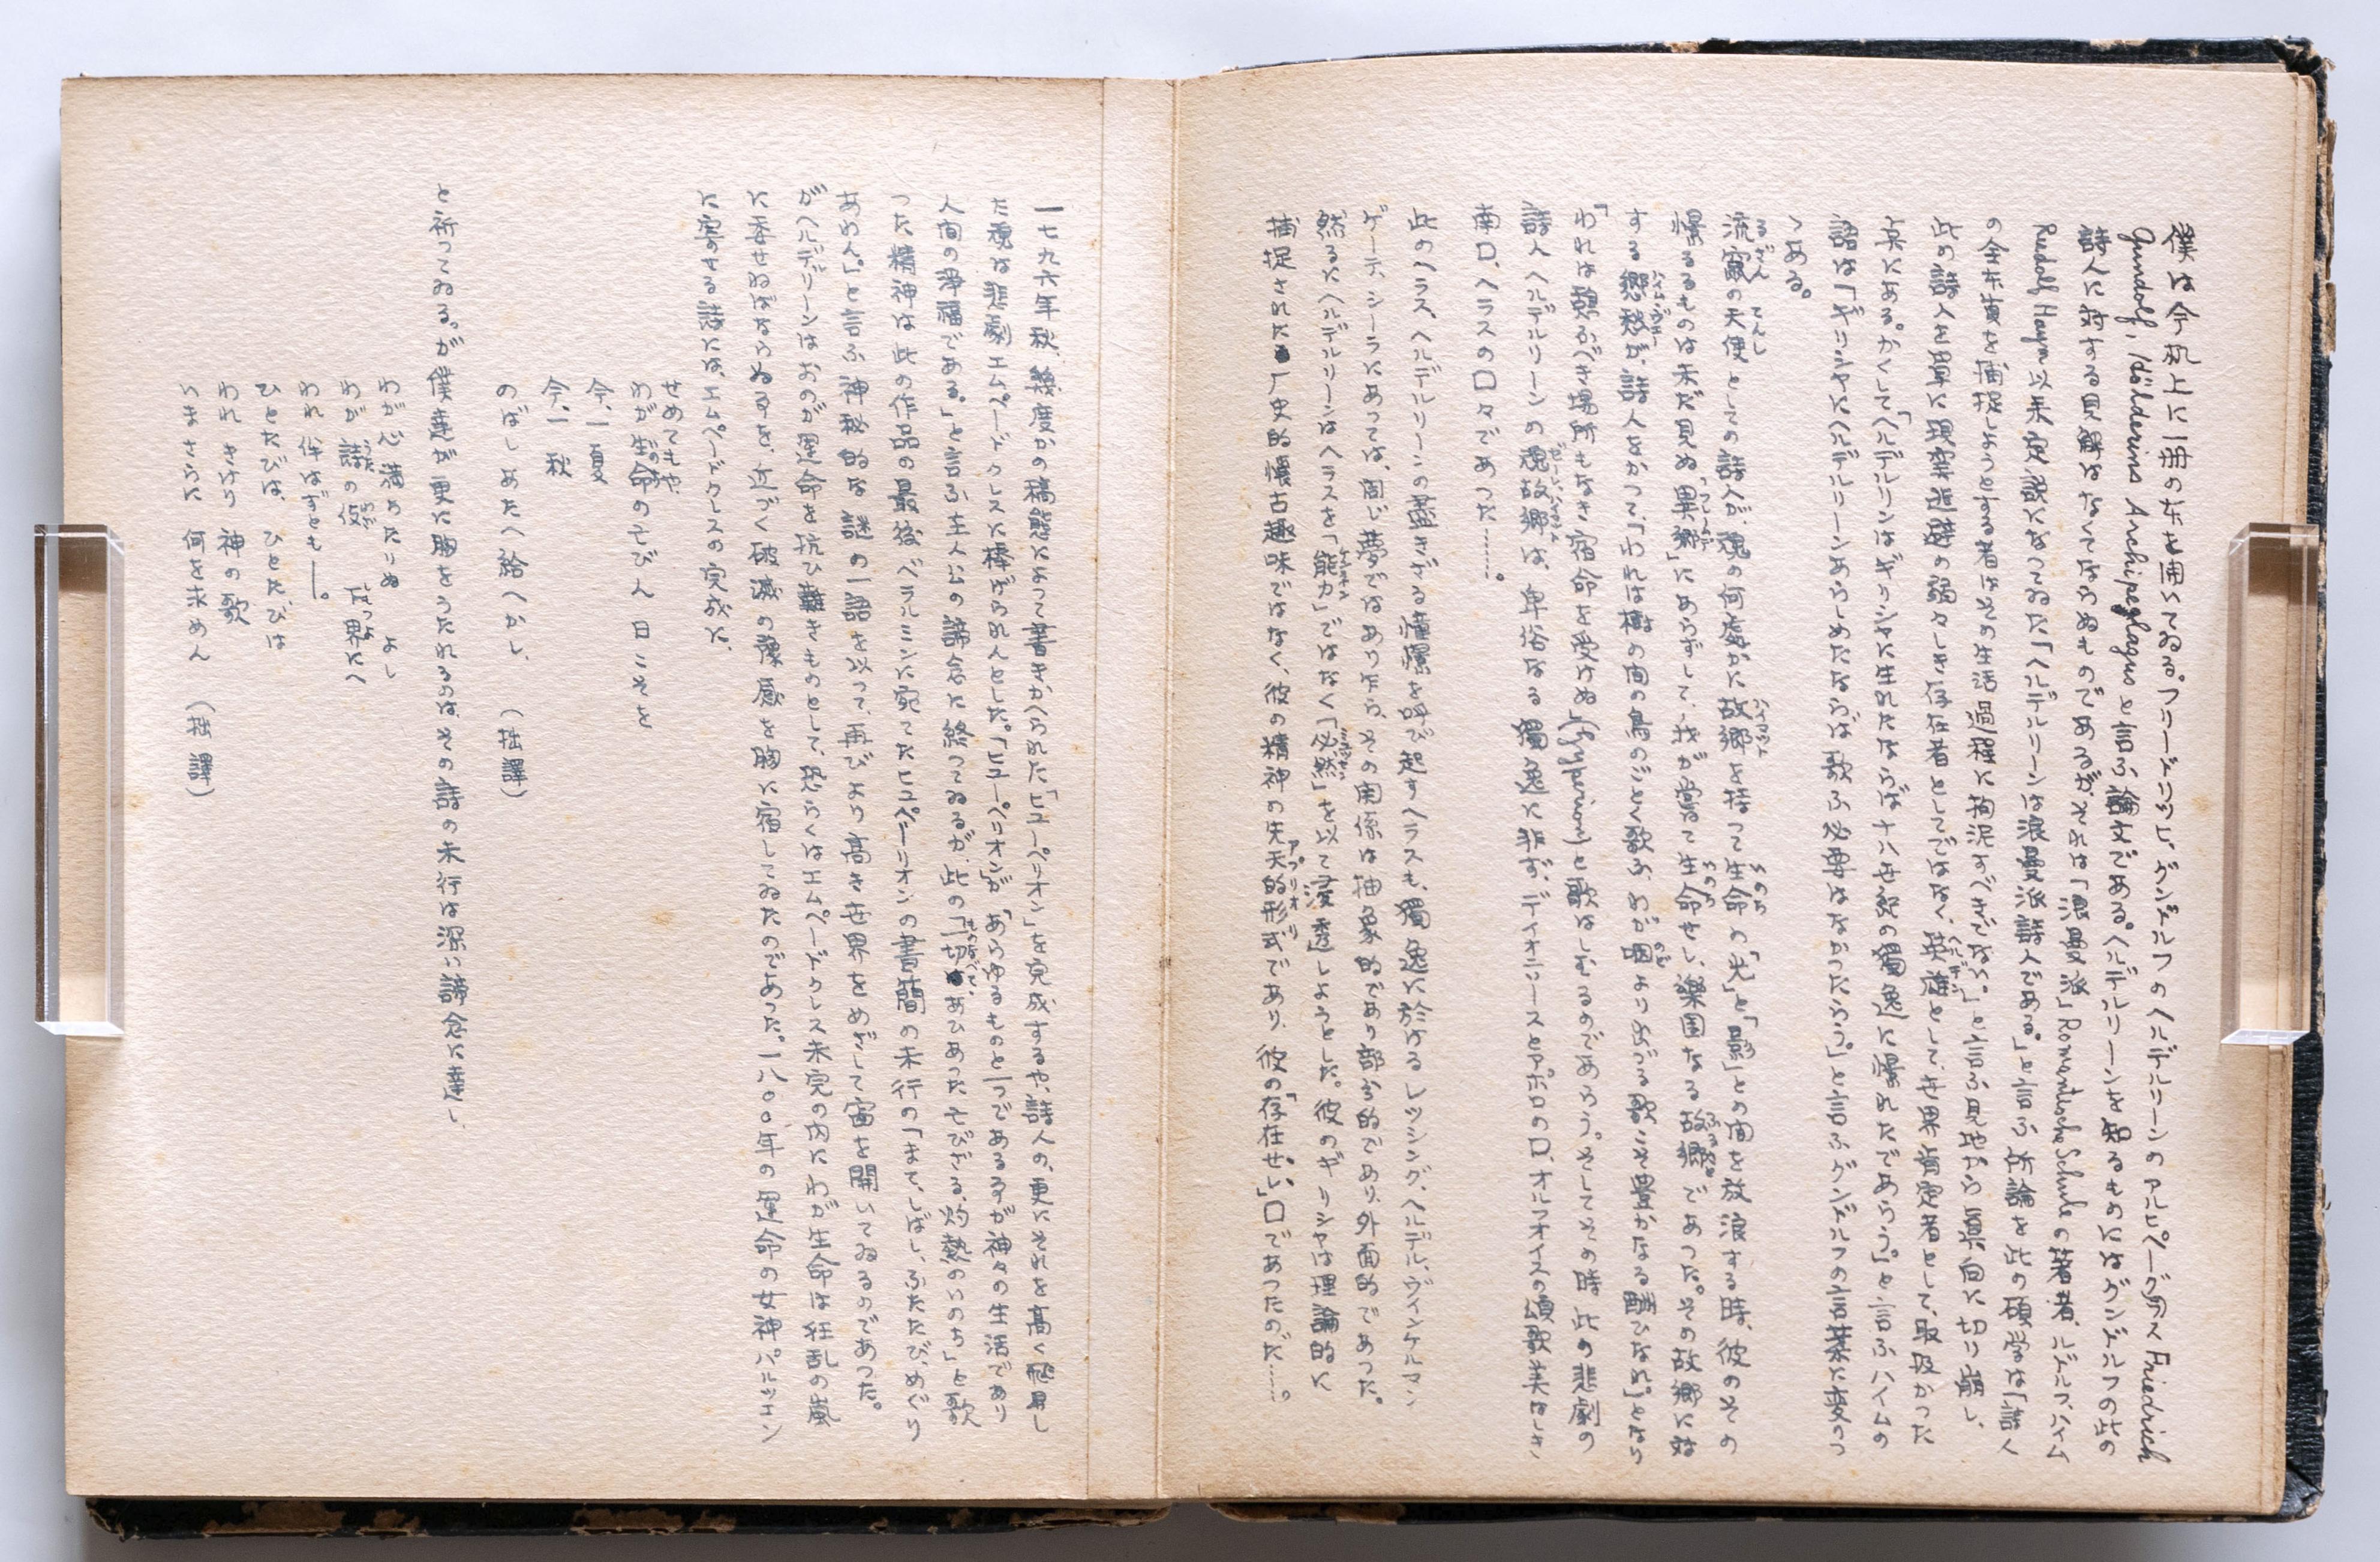 僕は今机上に一冊の本を開いてゐる。フリードリッヒ、グンドルフのヘルデルリーンのアルヒペーグラス Friedrich
Gundolf, Hölderlins Archipeglagusと言ふ論文である。ヘルデルリーンを知るためにはグンドルフの此の
詩人に対する見解はなくてはならぬものであるが、それは「浪曼派」Romantische Schuleの著者、ルドルフ、ハイム
Rudolf Haym以来定説になつてゐた「ヘルデルリーンは浪曼派詩人である。」と言ふ所論を此の碩学は「詩人
の全本質を捕捉しようとする者はその生活過程に拘泥すべきでない。」と言ふ見地から真向に切り崩し、
此の詩人を単に現実逃避の弱々しき存在者としてではなく、英雄として、世界肯定者として、取扱かつた
点にある。かくして「ヘルデルリンはギリシャに生れたならば十八世紀の獨逸に憬れたであらう。」と言ふハイムの
語は「ギリシャにヘルデルリーンあらしめたならば歌ふ必要はなかつたらう。」と言ふグンドルフの言葉に変つ
ゝある。
流竄の天使としての詩人が、魂の何處かに故郷を持つて生命の「光」と「影」との間を放浪する時、彼のその
憬るるものは未だ見ぬ「異郷」にあらずして、我が嘗て生命せし、楽園なる故郷であつた。その故郷に対
する懲愁が、詩人をかつて、「われは樹の間の鳥のごとく歌ふ、わが咽よりいづる歌こそ豊かなる酬ひなれ。」となら
「われは憩ふべき場所もなき宿命を受けぬ」(Hyperion)と歌はしむるのであらう。そしてその時此の悲劇の
詩人ヘルデルリーンの魂故郷は、卑俗なる獨逸に非ず、ディオニソースとアポロの口、オルフォイスの頌歌美はしき
南口、ヘラスの口々であつた……。
此のヘラス、ヘルデルリーンの盡きざる憧憬を呼び起すヘラスも、獨逸に於けるレッシング、ヘルデル、ヴインケルマン
ゲーテ、シーラにあつては、同じ夢ではあり乍ら、その関係は抽象的であり部分的であり、外面的であつた。
然るにヘルデルリーンはヘラスを「能力」ではなく「必然」を以て浸透しようとした。彼のギリシヤは理論的に
捕捉された厂史的懐古趣味ではなく、彼の精神の先天的形式であり、彼の「存在せし」口であつたのだ……。
一七九六年秋、幾度かの稿態によつて書きかへられた「ヒューペリオン」を完成するや、詩人の、更にそれを高く
た魂は悲劇エムペードクレスに捧げられんとした。「ヒューペリオンが「あらゆるものと一つであるが神々の生活であり
人間の浄福である。」と言ふ主人公の諦念に終つてゐるが、此の「一切、あひあつたとびざる、灼熱のいのち」と歌
つた精神は此の作品の最後、ベラルミンに宛てたヒュペーリオンの書簡の末行の「まて、しばし、ふたたび、めぐり
あめ人。」と言ふ神秘的な謎の一語を以つて、再びより高き世界をめざして窗を開いてゐるのであつた。
がヘルデリーンはおのが運命を抗ひ難きものとして、恐らくはエムペードクレス未完の内にわが生命は狂乱の嵐
に委せねばならぬを、近づく破滅の豫感を胸に宿してゐたのであつた。一八〇〇年の運命の女神パルツエン
に寄する詩には、エムペードクレスの完成に、
せめてもや
わが生命のそび人 日こそを
今、一夏
今、一秋
のばしあたへ給へかし、 (拙譯)
と祈つてゐる。が僕達が更に胸をうたれるのは、その詩の末行は深い諦念に達し、
わが心 満めたりぬ よし
わが 詩の彼 下界にへ
われ 伴はずとも―。
ひとたびは、ひとたびは
われ きけり 神の歌
いまさらに 何を求めん (拙譯)